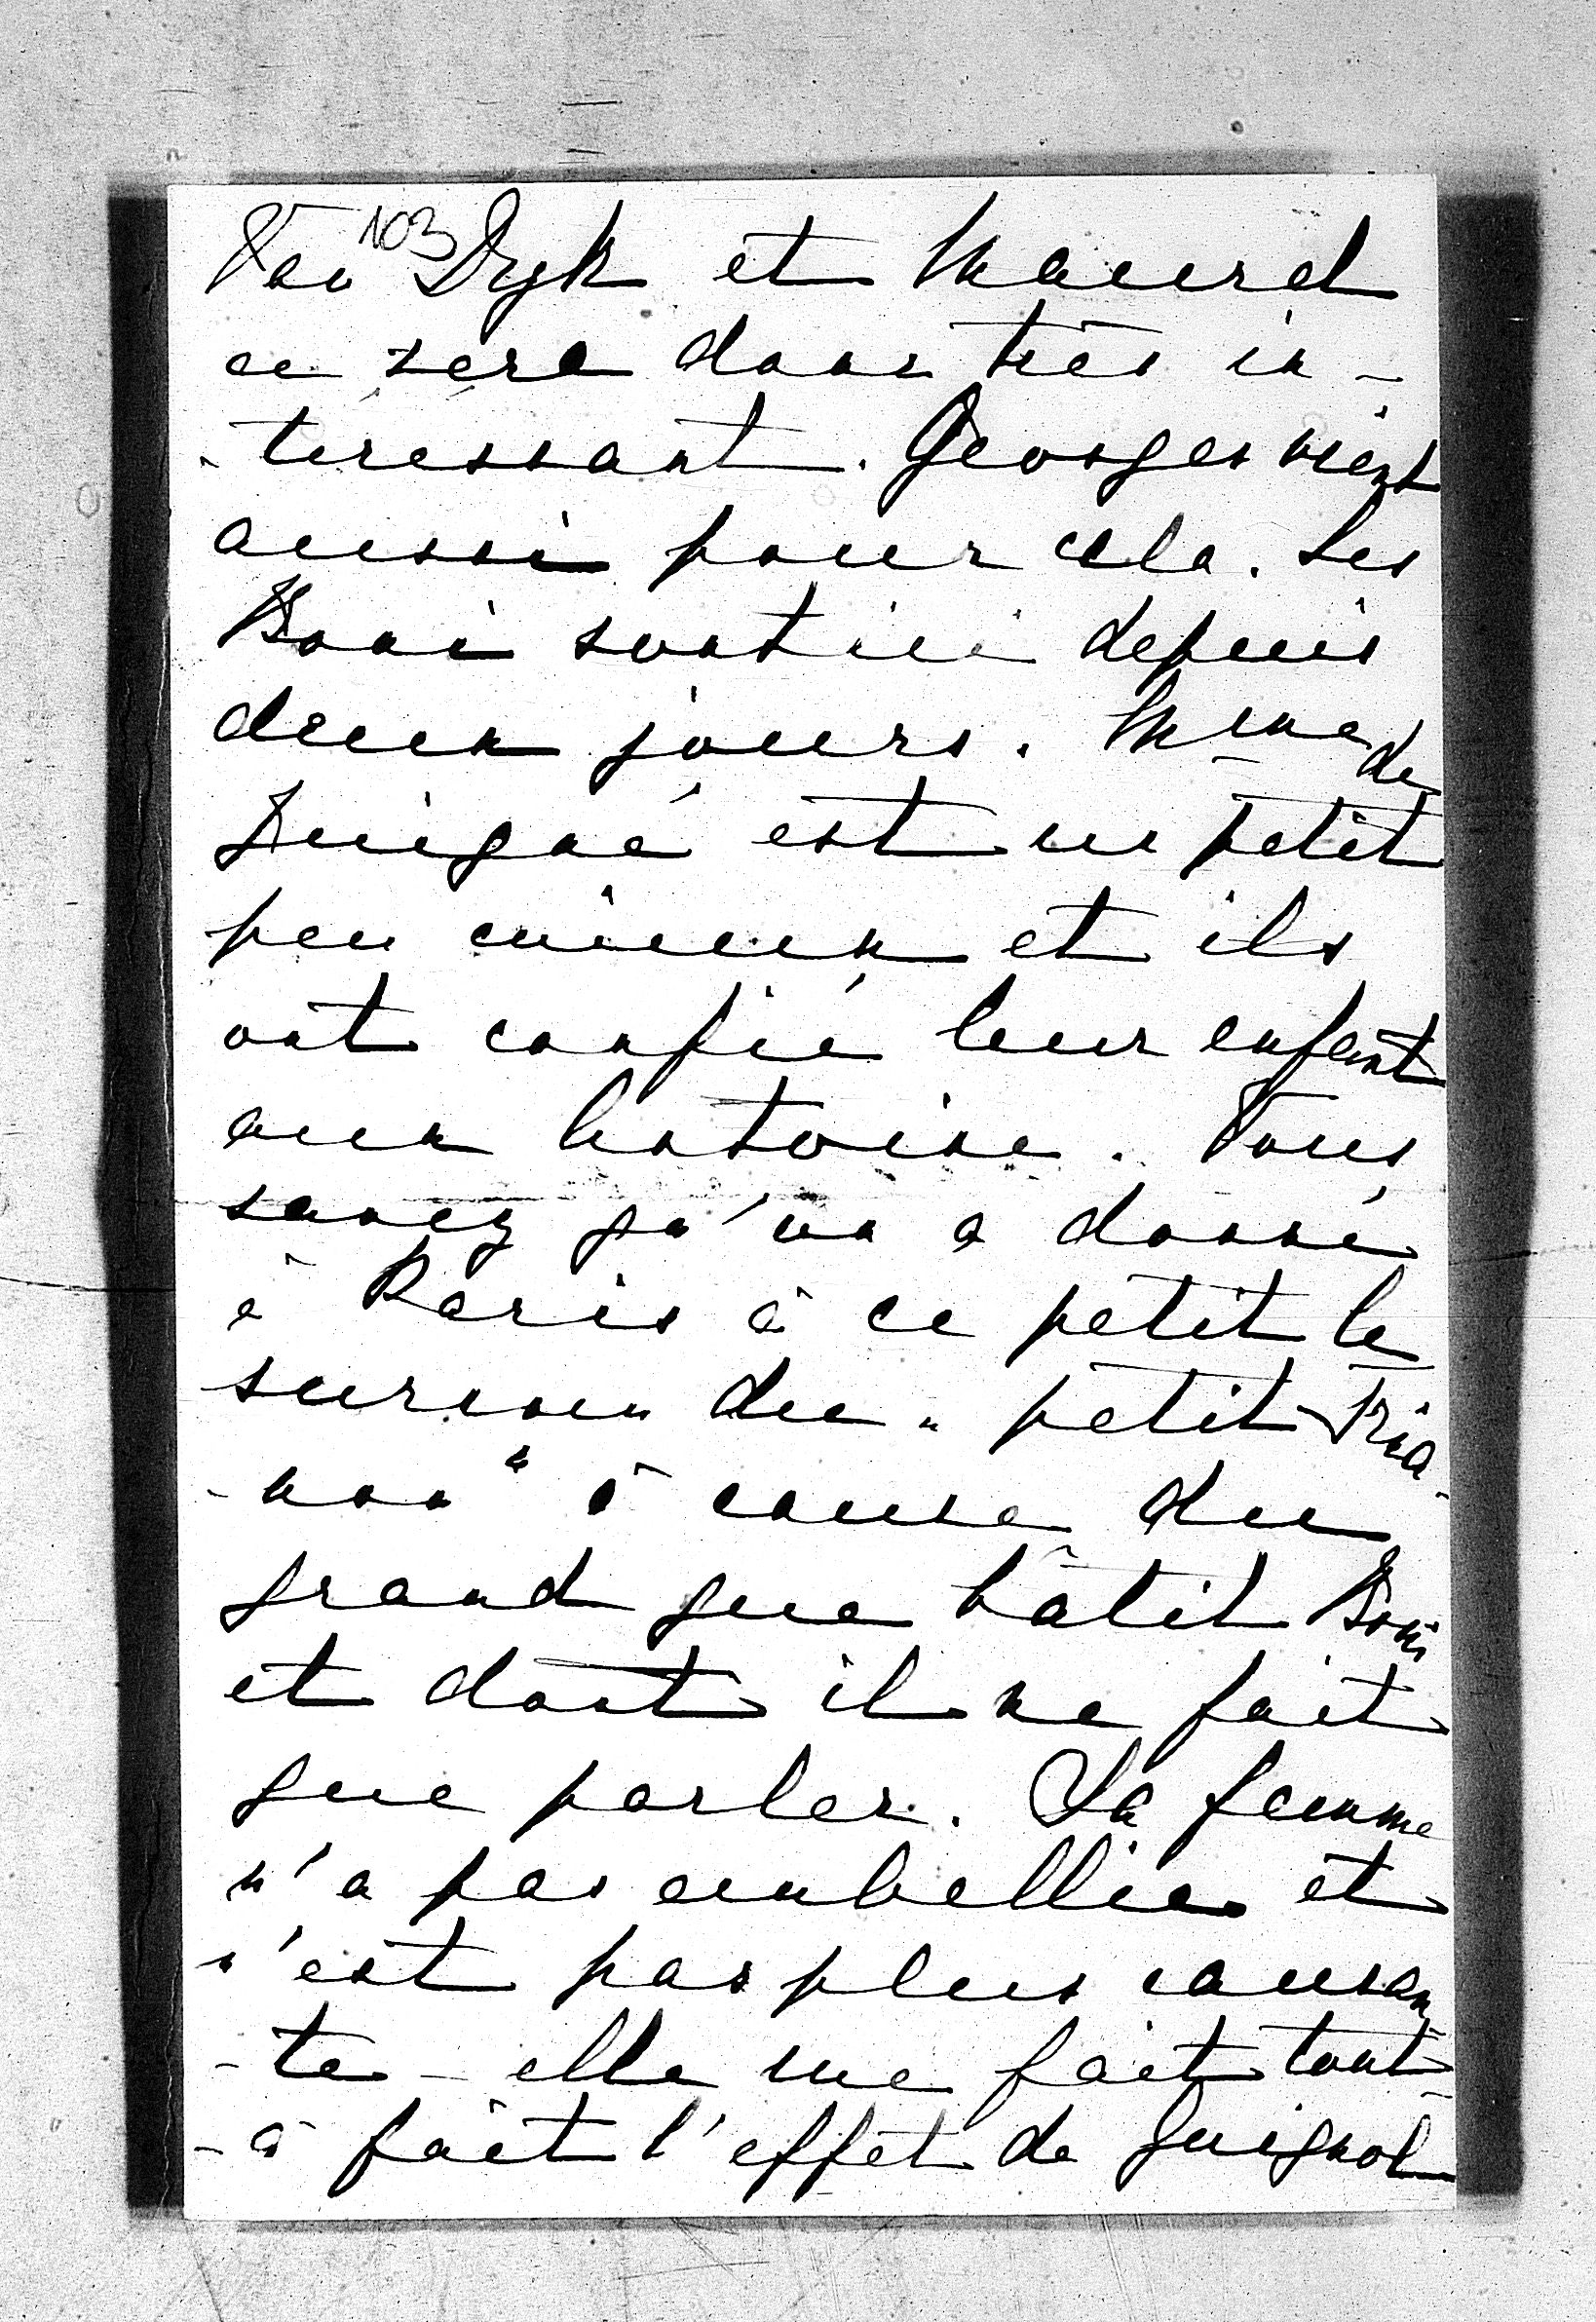 103
Van Dyk et Maurel
ce sera donc très in-
-téressant. Georges vient
aussi pour cela. Les
Boni sont ici depuis
deux jours. Mme de
Juigné est un petit
peu mieux et ils
ont confié leur enfant
aux Antoine. Vous
savez qu'on a donné
à Paris à ce petit le
surnom du "petit Tria-
-non" à cause du
grand que bâtit Boni
et dont il ne fait
que parler. Sa femme
n'a pas embellie et
n'est pas plus causan
-te - elle me fait tout-
-à fait l'effet de Guignol